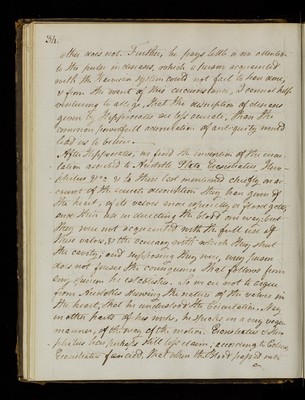 34.
other does not. Further, he pays little or no attention
to the pulse in diseases, which a person acquainted
with the Harveian system could not fail to have done,
& from the want of this circumstance, I cannot help
venturing to allege, that the description of diseases
given by Hippocrates are less accurate, than the
common powerful acclamation of antiquity would
lead us to believe.
After Hippocrates, we find the invention of the circu-
lation ascribed to Aristotle Plato, Erasistratus, Hero-
philus &c. & to these last mentioned chiefly on ac-
count of the accurate description they have given of
the heart, of its valves more especially
and their use in directing the blood one way; but
they were not acquainted with the full use of
these valves, & the accuracy with which they shut
the cavity; and supposing they were, every person
does not foresee the consequences that follows from
any opinion he establishes. So we are not to argue
from Aristotle's shewing the nature of the valves in
the heart, that he understood the Circulation. Nay,
in other parts of his works, he speaks in a very vague
manner, of the way of the motion. Erasistratus & Hero-
philus have perhaps still less claim; according to Galen,
Erasistratus fancied, that when the blood passed into